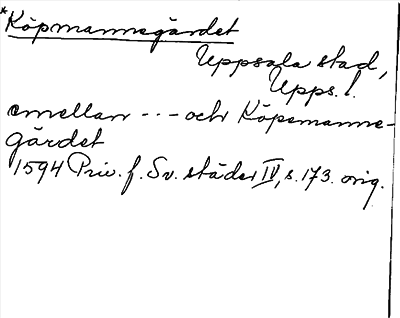 *Köpmannegärdet
Uppsala stad,
Upps. l.
emellan --- och Köpemanne-
gärdet
1594 Priv. f. Sv. städer IV, s. 173. orig.